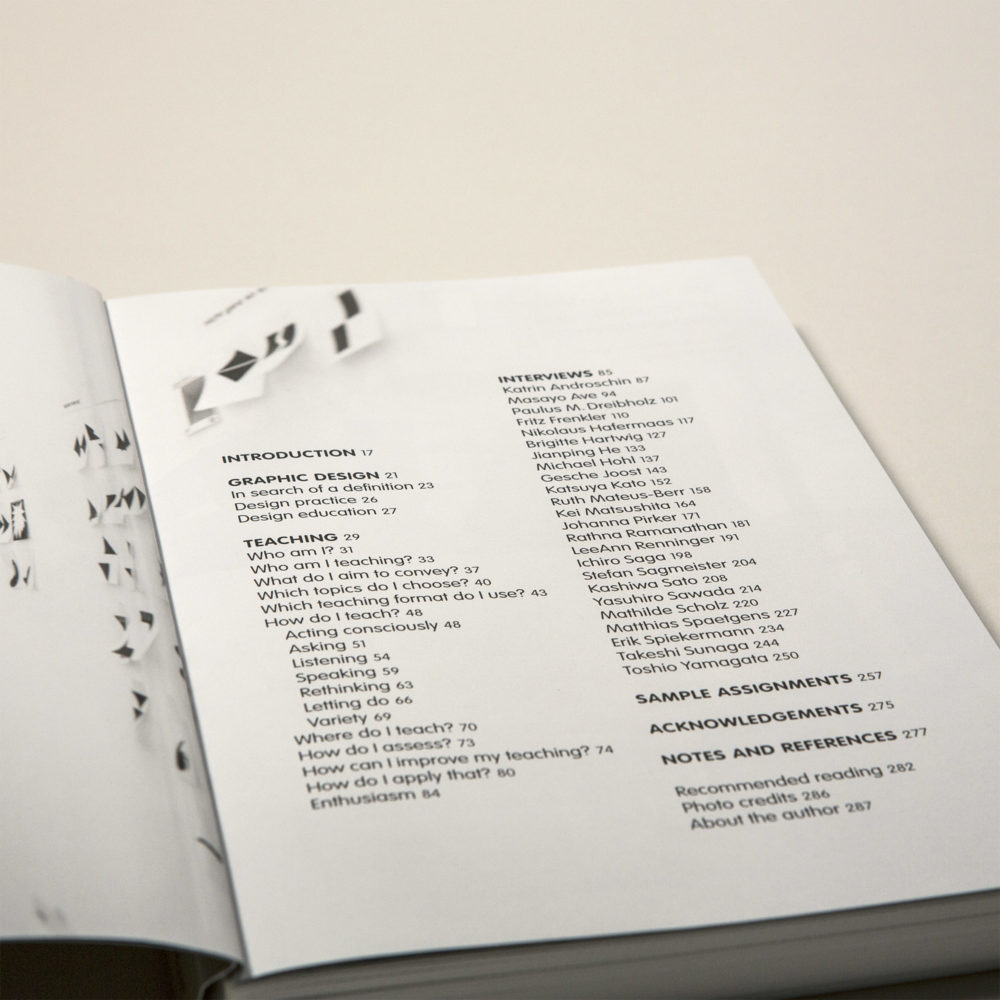 INTRODUCTION 17
GRAPHIC DESIGN 21
In search of a definition 23
Design practice 26
Design education 27
TEACHING 29
Who am I? 31
Who am I teaching? 33
What do I aim to convey? 37
Which topics do I choose? 40
Which teaching format do I use? 43
How do I teach? 48
Acting consciously 48
Asking 51
Listening 54
Speaking 59
Rethinking 63
Letting do 66
Variety 69
Where do I teach? 70
How do I assess? 73
How can I improve my teaching? 74
How do I apply that? 80
Enthusiasm 84
INTERVIEWS 85
Katrin Androschin 87
Masayo Ave 94
Paulus M. Dreibholz 101
Fritz Frenkler 110
Nikolaus Hafermaas 117
Brigitte Hartwig 127
Jianping He 133
Michael Hohl 137
Gesche Joost 143
Katsuya Kato 152
Ruth Mateus-Berr 158
Kei Matsushita 164
Johanna Pirker 171
Rathna Ramanathan 181
LeeAnn Renninger 191
Ichiro Saga 198
Stefan Sagmeister 204
Kashiwa Sato 208
Yasuhiro Sawada 214
Mathilde Scholz 220
Matthias Spaetgens 227
Erik Spiekermann 234
Takeshi Sunaga 244
Toshio Yamagata 250
SAMPLE ASSIGNMENTS 257
ACKNOWLEDGEMENTS 275
NOTES AND REFERENCES 277
Recommended reading 282
Photo credits 286
About the author 287